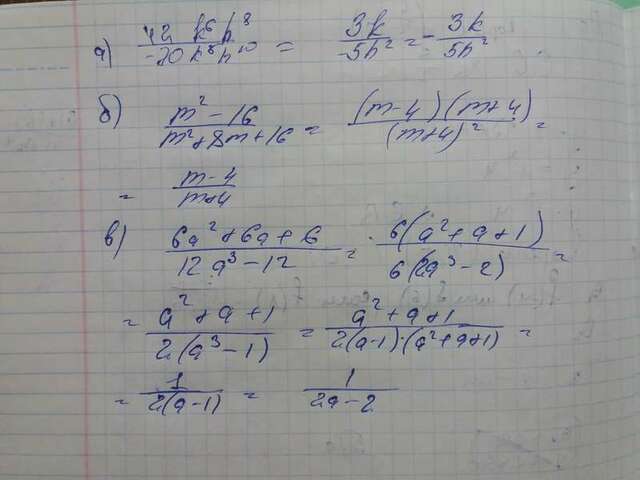 а) \frac{12 k^6 h^8}{-20 k^5 h^{10}} = \frac{3k}{-5h^2} = -\frac{3k}{5h^2}
б) \frac{m^2 - 16}{m^2 + 8m + 16} = \frac{(m-4)(m+4)}{(m+4)^2} =
= \frac{m-4}{m+4}
в) \frac{6a^2 + 6a + 6}{12a^3 - 12} = \frac{6(a^2 + a + 1)}{6(2a^3 - 2)} =
= \frac{a^2 + a + 1}{2(a^3 - 1)} = \frac{a^2 + a + 1}{2(a-1)·(a^2 + a + 1)} =
= \frac{1}{2(a-1)} = \frac{1}{2a-2}